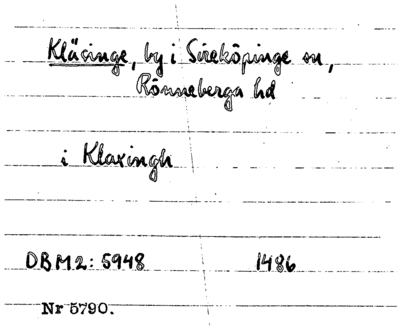 Kläsinge, by i Sireköpinge sn,
Rönneberga hd
i Klaxingh
DBM2: 5948 1486
Nr 5790.